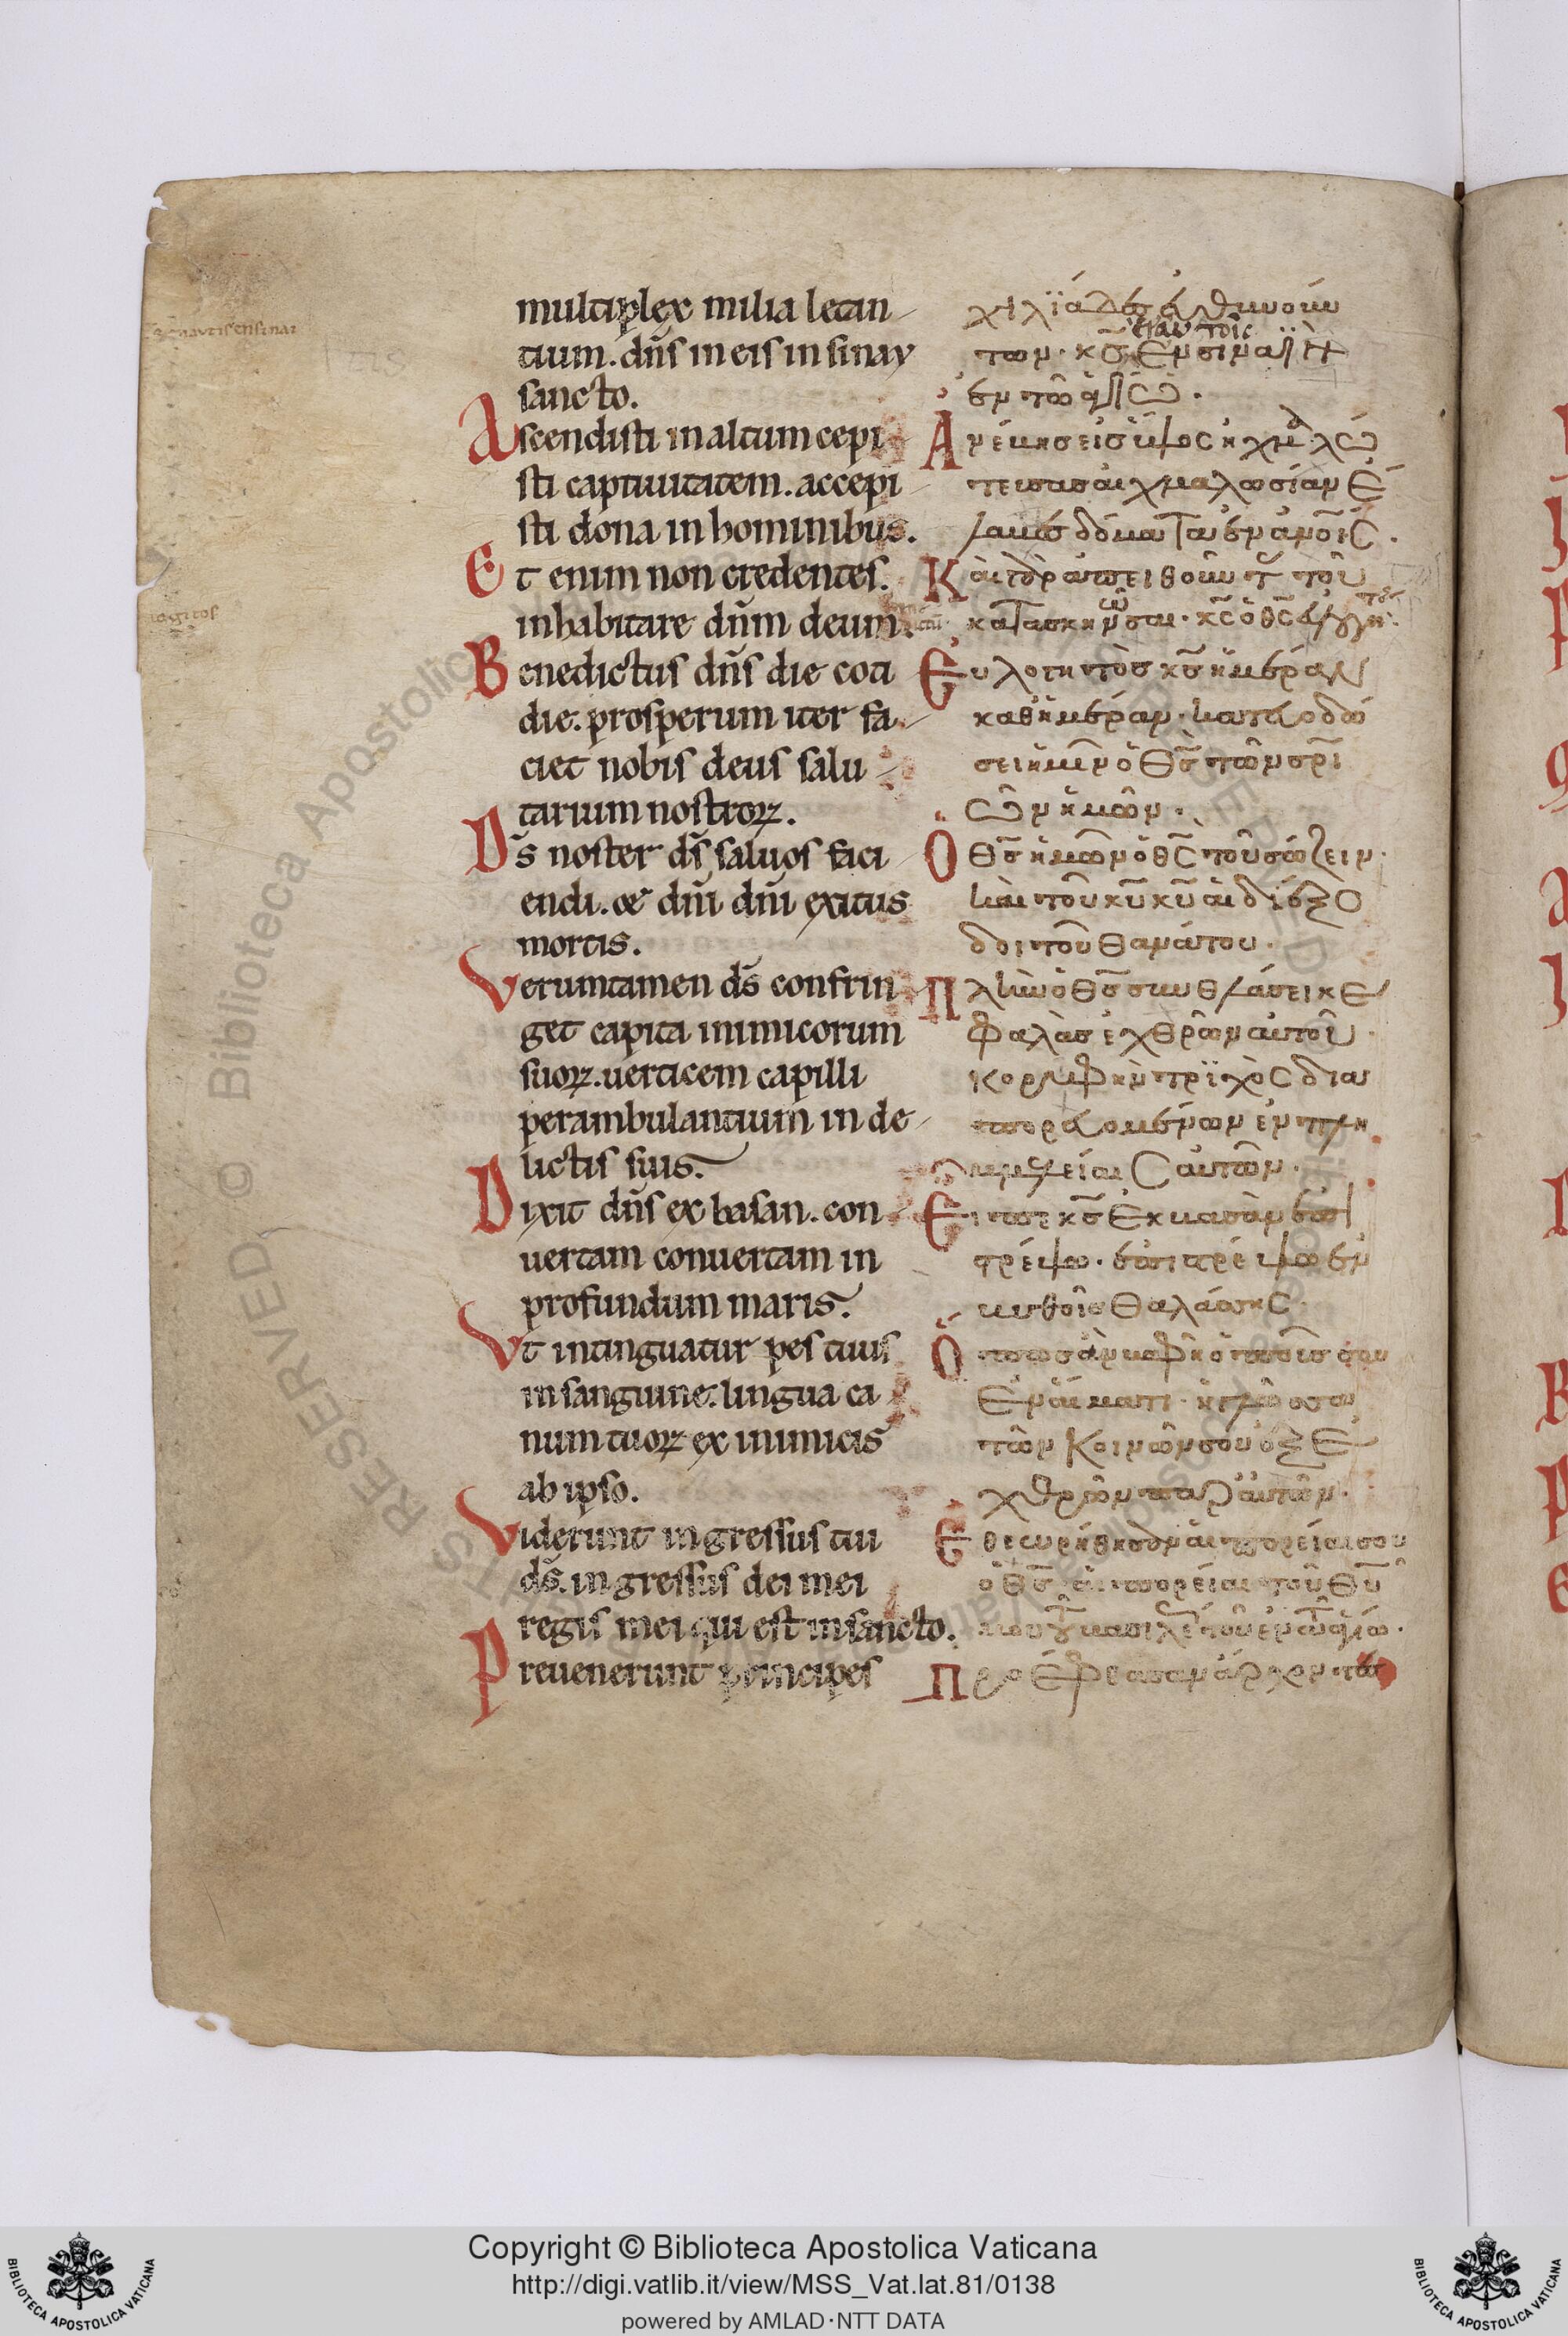 multiplex milia letan
tium. dn̄s in eis in sinay
sancto.
Ascendisti in altum cepi
sti captiuitatem. accepi
sti dona in hominibus.
Et enim non credentes.
inhabitare dn̄m deum.
Benedictus dn̄s die coti
die. prosperum iter fa
ciet nobis deus salu
tarium nostrorꝝ.
Ds̄ noster ds̄ saluos faci
endi. & dn̄i dn̄i exitus
mortis.
Verumtamen ds̄ confrin
get capita inimicorum
suorꝝ. uerticem capilli
perambulantium in de
lictis suis.
Dixit dn̄s ex basan. con
uertam conuertam in
profundum maris.
Vt intinguatur pes tuus
in sanguine. lingua ca
num tuorꝝ ex inimicis
ab ipso.
Viderunt ingressus tui
ds̄. ingressus dei mei
regis mei qui est in sancto.
Preuenerunt principes
χιλϊάδεσ ἐυθηνούν
των· κσ̄ Ἐν σινᾶϊ
ἐν τῶ ἁγίω.
Ἀνέβησ εἰσ ὕψοσ ἠχμαλώ
τευσασ ἀιχμαλωσίαν Ἔ
λαβεσ δόματα ἐν ἀνοῖσ.
Κ
κατασκηνῶσαι· κσ̄ ὁ θσ̄
Ἐυλογητὸσ κσ̄ ἡμέραν
καθημέραν· κατευοδώ
σει ἡμῖν ὁ Θσ̄ τῶν σρι
ῶν ἡμῶν.
Ὁ Θσ̄ ἡμῶν ὁ θσ̄ τοῦ σώζειν·
καὶ τοῦ κῡ κῡ ἁι διέξο
δοι τοῦ θανάτου.
Πλὴν ὁ Θσ̄ συνθλάσει κε
φαλὰσ ἐχθρῶν ἀυτοῦ·
κορυφὴν τρϊχὸσ δια
πορευομένων ἐν πλη
μμελείαισ ἀυτῶν.
Εἶπε κσ̄ Ἐκ βασὰν ἐπισ
τρέψω· ἐπιστρέψω ἐν
βυθοῖσ Θαλάσσησ.
Ὅπωσ ἂν βαφῆ ὁ ποῦσ σου
Ἐν ἅιματι· ἡ γλῶσσα
τῶν Κοινῶν σου ἐξ Ἐ
χθρῶν παρ ἀυτῶν.
Ἐθεωρήθησαν ἁι πορείαι σου
ὁ Θσ̄ ἁι πορείαι τοῦ Θῡ
Προέφθασαν ἄρχοντεσ
Copyright © Biblioteca Apostolica Vaticana
http://digi.vatlib.it/view/MSS_Vat.lat.81/0138
powered by AMLAD·NTT DATA
BIBLIOTECA APOSTOLICA VATICANA
BIBLIOTECA APOSTOLICA VATICANA